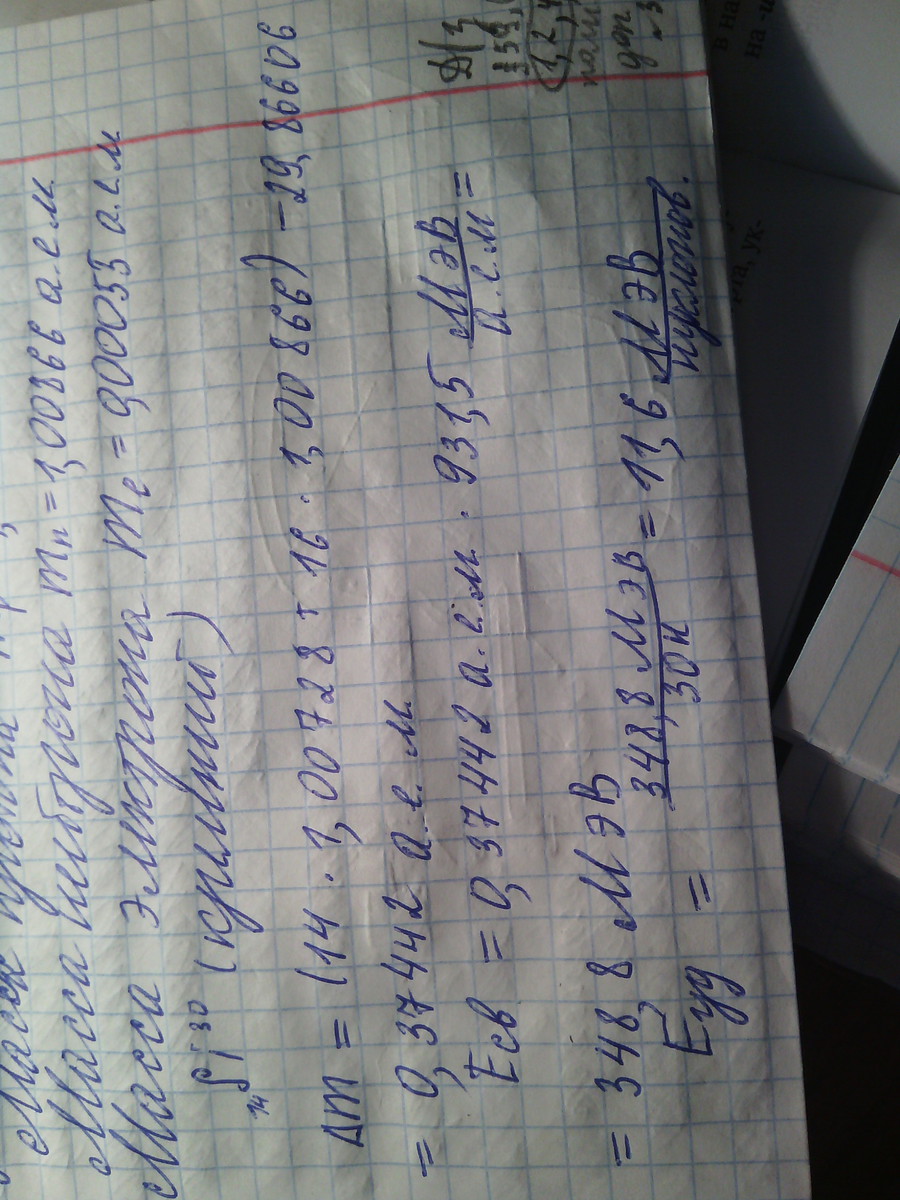 Масса протона
Масса нейтрона mₙ = 1,00866 а.е.м
Масса электрона mₑ = 0,00055 а.е.м
₁₄Si³⁰ (кремний)
Δm = (14 · 1,00728 + 16 · 1,00866) – 29,86606
= 0,37442 а.е.м.
Eсв = 0,37442 а.е.м. · 931,5 МэВ/а.е.м =
= 348,8 МэВ
Eуд = 348,8 МэВ/30н = 11,6 МэВ/нуклонов.
Д/з